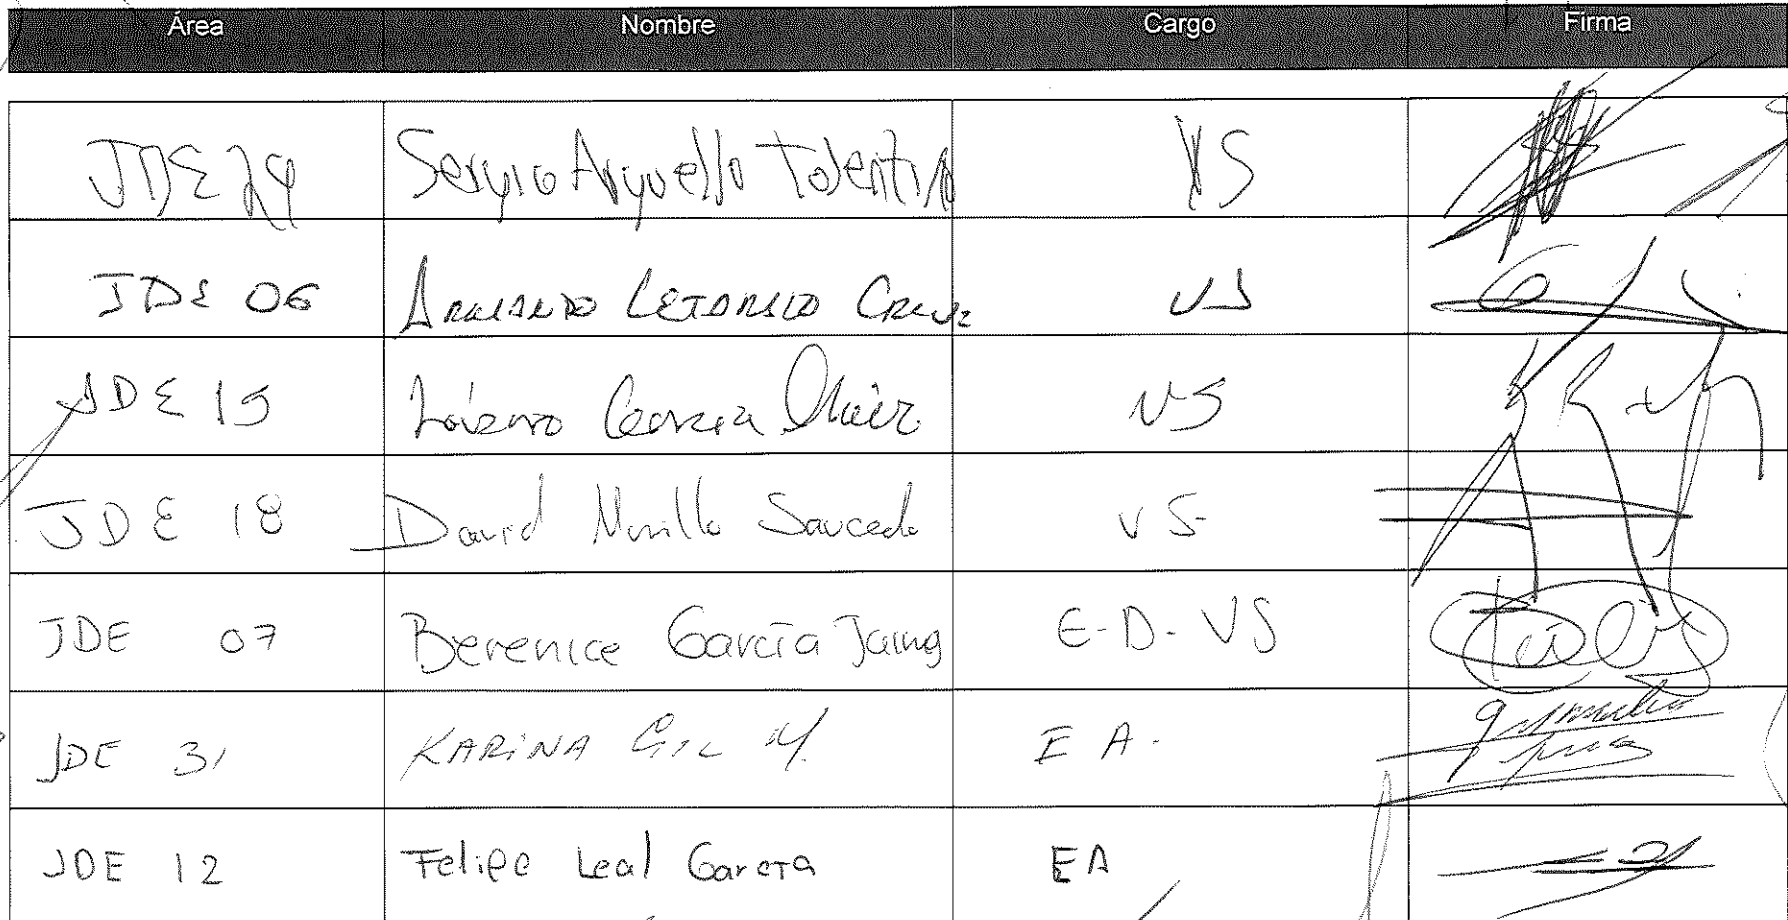 Área Nombre Cargo Firma
JDE 24 Sergio Arguello Tolentino VS
JDE 06 Armando Cruz VS
JDE 15 García VS
JDE 18 David Murillo Saucedo VS
JDE 07 Berenice García E-D-VS
JDE 31 KARINA Gil M. E A.
JDE 12 Felipe Leal García EA